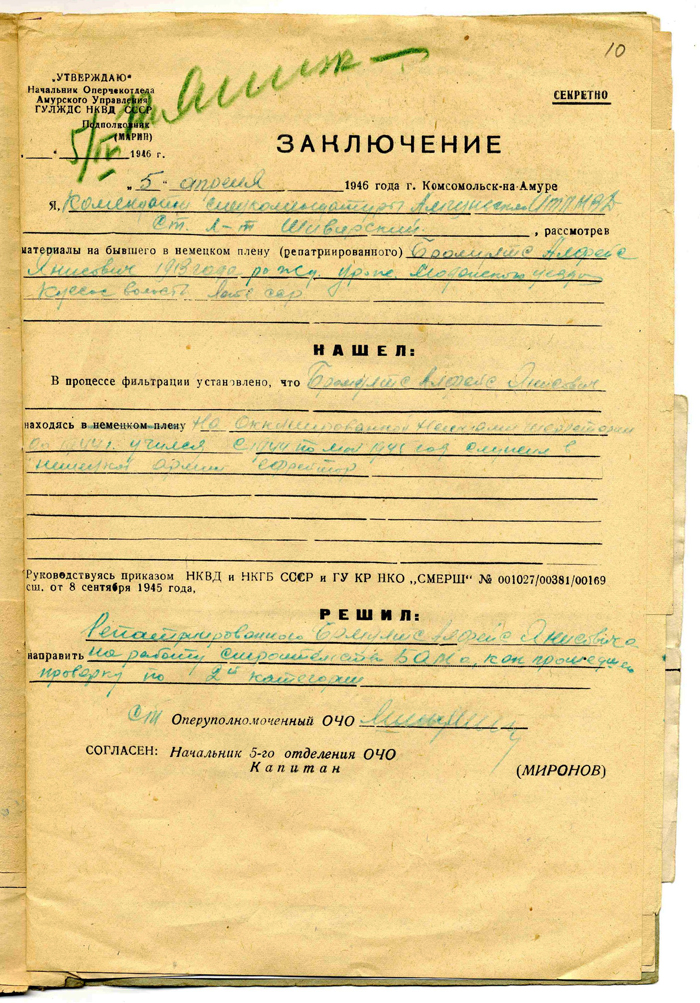 10
„УТВЕРЖДАЮ“
Начальник Оперчекотдела
Амурского Управления
ГУЛЖДС НКВД СССР
Подполковник
(МАРИН)
5/IV 1946 г.
СЕКРЕТНО
ЗАКЛЮЧЕНИЕ
„5“ апреля 1946 года г. Комсомольск-на-Амуре
Я,
Ст. л-т , рассмотрев
материалы на бывшего в немецком плену (репатриированного)
Янисович 1913 года рожд. уезда
волость
НАШЕЛ:
В процессе фильтрации установлено, что Янисович
находясь в немецком плену На оккупированной немцами территории
до 1944 г. учился с 1944 по май 1945 год служил в
немецкой армии ефрейтор
Руководствуясь приказом НКВД и НКГБ СССР и ГУ КР НКО „СМЕРШ“ № 001027/00381/00169
сш. от 8 сентября 1945 года,
РЕШИЛ:
Репатриированного Янисовича
направить на работу строительства БАМа, как прошедшего
проверку по 2й категории
Ст Оперуполномоченный ОЧО
СОГЛАСЕН: Начальник 5-го отделения ОЧО
Капитан (МИРОНОВ)